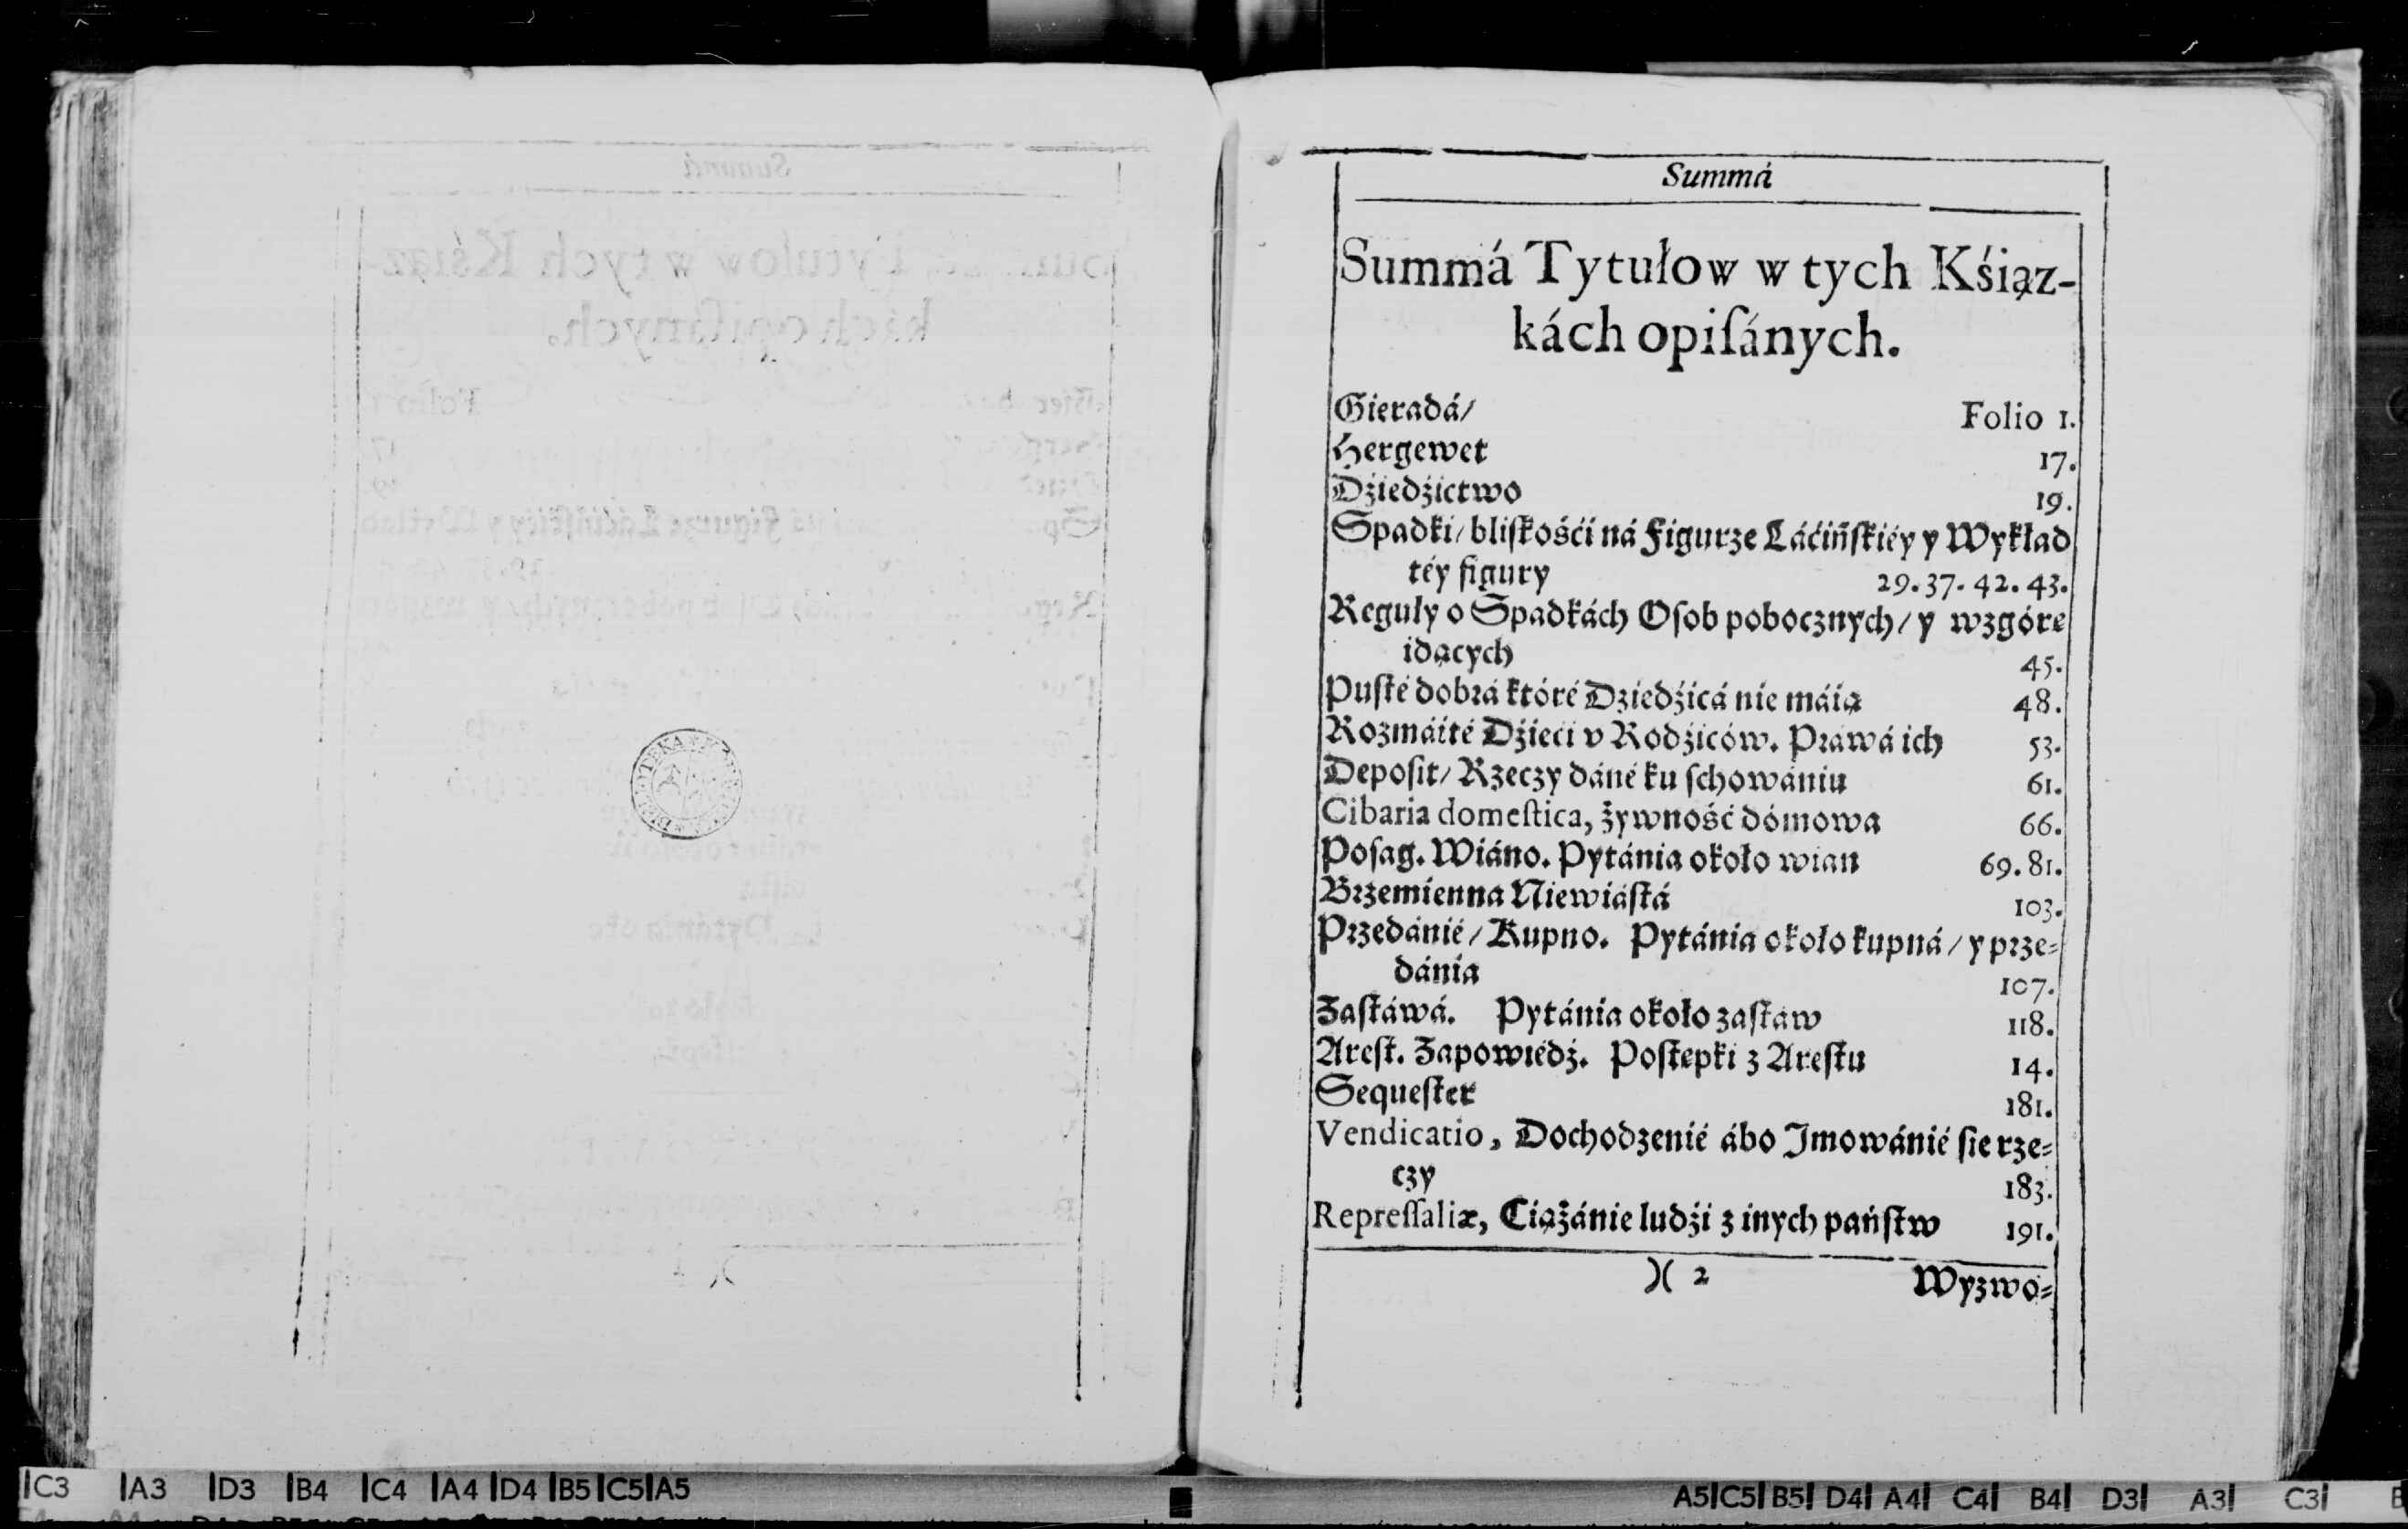 Summá
Summá Tytułow w tych Kśiąz-
kách opiſánych.
Gieradá/ Folio 1.
Hergewet 17.
Dźiedźictwo 19.
Spadki/ bliſkośći ná Figurze Láćińſkiéy y Wykład
téy figury 29. 37. 42. 43.
Reguły o Spadkách Oſob pobocznych/ y wzgóre
idących 45.
Puſté dobrá któré Dziedźicá nie máią 48.
Rozmáité Dźieći v Rodźiców. Práwá ich 53.
Depoſit/ Rzeczy dáné ku ſchowániu 61.
Cibaria domeſtica, żywność dómowa 66.
Poſag. Wiáno. Pytánia około wian 69. 81.
Brzemienna Niewiáſtá 103.
Przedánié/ Kupno. Pytánia około kupná/ y prze-
dánia 107.
Zaſtáwá. Pytánia około zaſtaw 118.
Areſt. Zapowiédź. Poſtepki z Areſtu 14.
Sequeſter 181.
Vendicatio, Dochodzenié ábo Jmowánié ſie rze-
czy 183.
Repreſſaliæ, Ciążánie ludźi z inych pańſtw 191.
)( 2 Wyzwo-
C3 A3 D3 B4 C4 A4 D4 B5 C5 A5
A5 C5 B5 D4 A4 C4 B4 D3 A3 C3